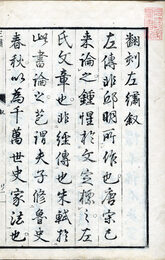 翻刻左繡敘
左傳非邱明所作也唐宋已
来論之鍾惺於文標於左
氏文章也非經傳也朱軾於
此書論之謂夫子修魯史
春秋以為千萬世史家法也